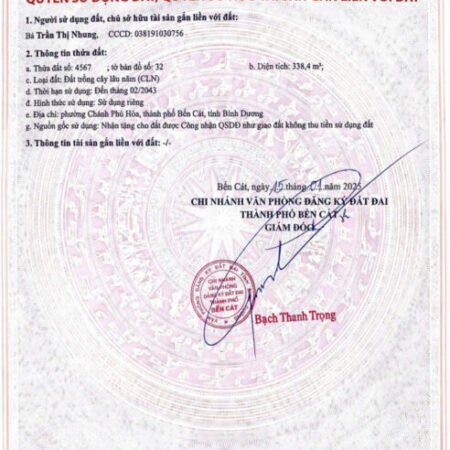 1. Người sử dụng đất, chủ sở hữu tài sản gắn liền với đất:
Bà Trần Thị Nhung, CCCD: 038191030756
2. Thông tin thửa đất:
a. Thửa đất số: 4567 ; tờ bản đồ số: 32 b. Diện tích: 338,4 m²;
c. Loại đất: Đất trồng cây lâu năm (CLN)
d. Thời hạn sử dụng: Đến tháng 02/2043
đ. Hình thức sử dụng: Sử dụng riêng
e. Địa chỉ: phường Chánh Phú Hòa, thành phố Bến Cát, tỉnh Bình Dương
g. Nguồn gốc sử dụng: Nhận tặng cho đất được Công nhận QSDĐ như giao đất không thu tiền sử dụng đất
3. Thông tin tài sản gắn liền với đất: -/-
Bến Cát, ngày 15 tháng 01 năm 2025
CHI NHÁNH VĂN PHÒNG ĐĂNG KÝ ĐẤT ĐAI
THÀNH PHỐ BẾN CÁT
GIÁM ĐỐC
CHI NHÁNH
VĂN PHÒNG
ĐĂNG KÝ ĐẤT ĐAI
THÀNH PHỐ
BẾN CÁT
Bạch Thanh Trọng